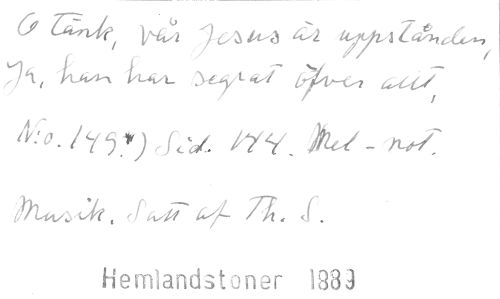 O tänk, vår Jesus är uppstånden,
Ja, han har segrat öfver allt,
N:o. 149.) Sid. 144. Mel-not.
Musik. Satt af Th. S.
Hemlandstoner 1889